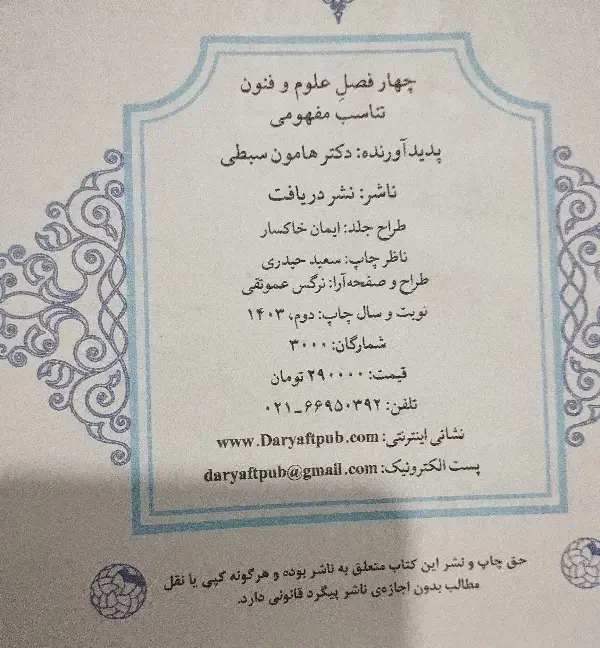 چهار فصلِ علوم و فنون
تناسب مفهومی
پدیدآورنده: دکتر هامون سبطی
ناشر: نشر دریافت
طراح جلد: ایمان خاکسار
ناظر چاپ: سعید حیدری
طراح و صفحه‌آرا: نرگس عموتقی
نوبت و سال چاپ: دوم، ۱۴۰۳
شمارگان: ۳۰۰۰
قیمت: ۲۹۰۰۰۰ تومان
تلفن: ۶۶۹۵۰۳۹۲-۰۲۱
نشانی اینترنتی: www.Daryaftpub.com
پست الکترونیک: daryaftpub@gmail.com
حق چاپ و نشر این کتاب متعلق به ناشر بوده و هرگونه کپی یا نقل
مطالب بدون اجازه‌ی ناشر پیگرد قانونی دارد.